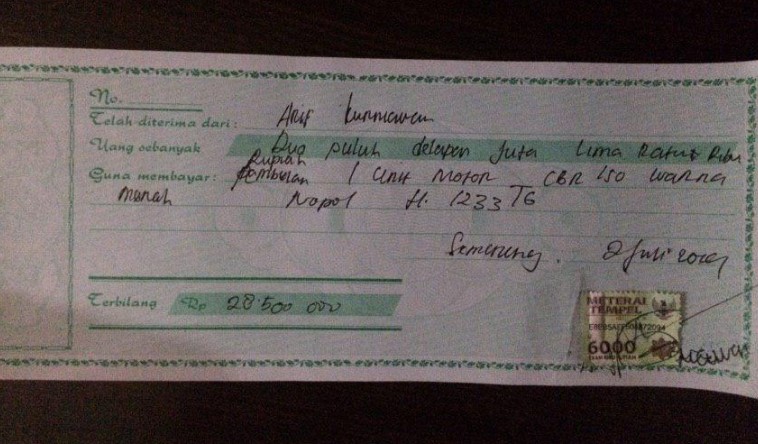 No.
Telah diterima dari : Arif Kurniawan
Uang sebanyak Dua puluh delapan Juta Lima Ratus Ribu
Rupiah
Guna membayar : Pembelian 1 Unit Motor CBR 150 warna
merah Nopol H. 1233 TG
Semarang. 2 Juli
Terbilang Rp 28.500 000
METERAI
TEMPEL
6000